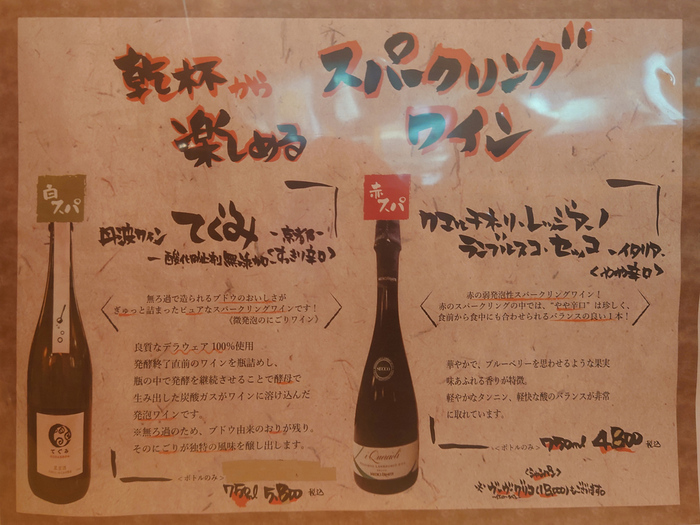 乾杯から
楽しめる
スパークリング
ワイン
白
スパ
丹波ワイン てぐみ -京都-
-酸化防止剤無添加- くすっきり辛口>
無ろ過で造られるブドウのおいしさが
ぎゅっと詰まったピュアなスパークリングワインです!
(微発泡のにごりワイン)
良質なデラウェア 100%使用
発酵終了直前のワインを瓶詰めし、
瓶の中で発酵を継続させることで酵母で
生み出した炭酸ガスがワインに溶け込んだ
発泡ワインです。
※無ろ過のため、ブドウ由来のおりが残り。
そのにごりが独特の風味を醸し出します。
<ボトルのみ>
750ml 5,800 税込
てぐみ
赤
スパ
クアエルチオーリ・レッジアーノ
ランブルスコ・セッコ -イタリア-
<やや辛口>
赤の弱発泡性スパークリングワイン!
赤のスパークリングの中では、"やや辛口"は珍しく、
食前から食中にも合わせられるバランスの良い1本!
華やかで、ブルーベリーを思わせるような果実
味あふれる香りが特徴。
軽やかなタンニン、軽快な酸のバランスが非常
に取れています。
<ボトルのみ>
750ml 4,800 税込